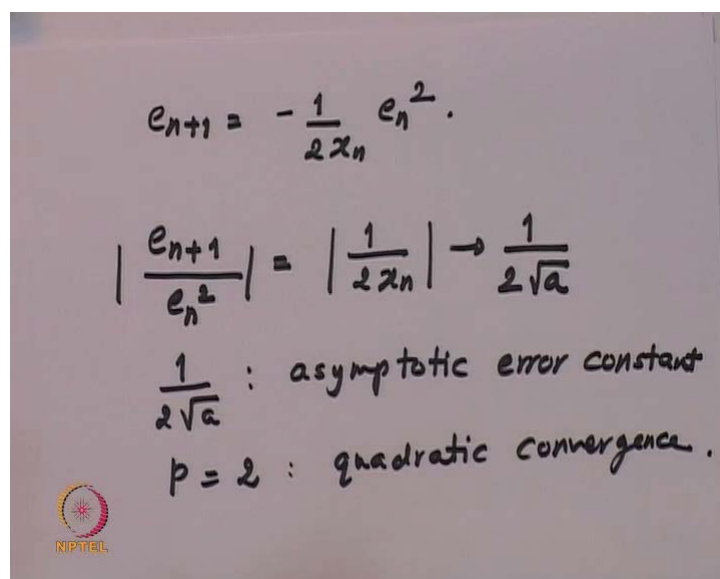 e_{n+1} = - \frac{1}{2x_n} e_n^2.
| \frac{e_{n+1}}{e_n^2} | = | \frac{1}{2x_n} | → \frac{1}{2√a}
\frac{1}{2√a} : asymptotic error constant
p = 2 : quadratic convergence.
NPTEL